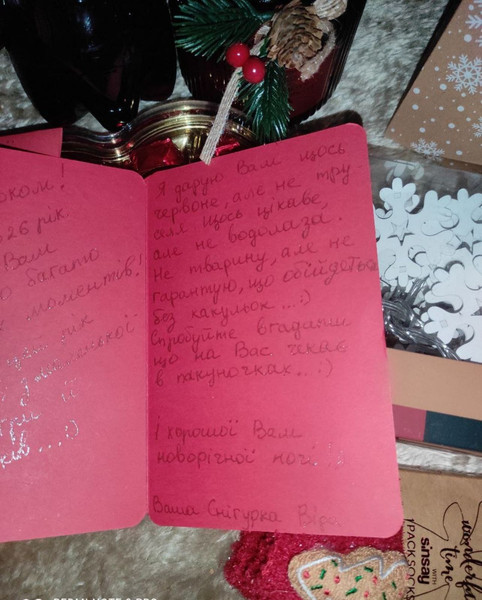 оком!
26 рік.
Вам
о багато
моментів!
рік
маленької
її
...:)
Я дарую Вам щось
червоне, але не тру-
щось цікаве,
але не водолаза.
Не тварину, але не
гарантую, що обійдеться
без какульок...:)
Спробуйте вгадати
що на Вас чекає
в пакуночках...:)
І хорошої Вам
новорічної ночі!
Ваша Снігурка Віра.
wonderful
time
WITH
sinsay
1PACK SOCKS